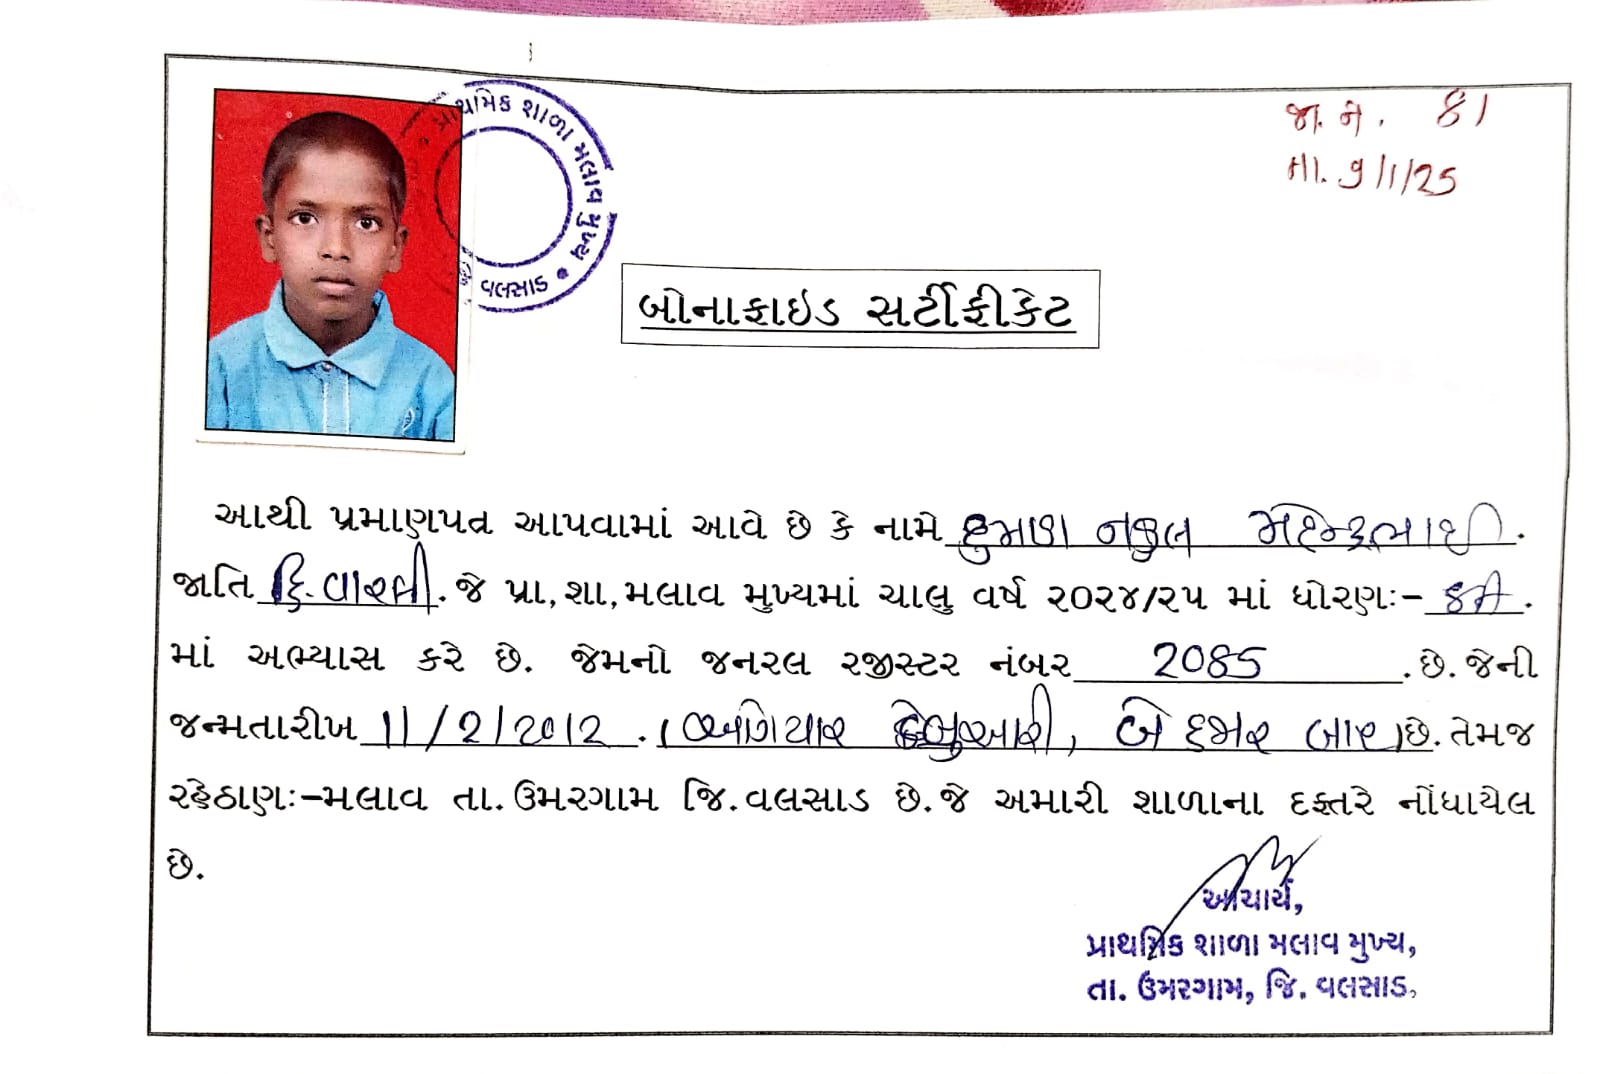 પ્રાથમિક શાળા મલાવ મુખ્ય
વલસાડ
જા. નં. 81
તા. 9/1/25
બોનાફાઇડ સર્ટીફીકેટ
આથી પ્રમાણપત્ર આપવામાં આવે છે કે નામે ધુમાળ નકુલ મહેન્દ્રભાઈ.
જાતિ હિ.વારલી. જે પ્રા,શા,મલાવ મુખ્યમાં ચાલુ વર્ષ ૨૦૨૪/૨૫ માં ધોરણઃ-
માં અભ્યાસ કરે છે. જેમનો જનરલ રજીસ્ટર નંબર 2085 .છે.જેની
જન્મતારીખ 11/2/2012 .(અગિયાર ફેબ્રુઆરી, બે હજાર બાર)છે.તેમજ
રહેઠાણઃ-મલાવ તા.ઉમરગામ જિ.વલસાડ છે.જે અમારી શાળાના દફ્તરે નોંધાયેલ
છે.
આચાર્ય,
પ્રાથમિક શાળા મલાવ મુખ્ય,
તા. ઉમરગામ, જિ. વલસાડ.